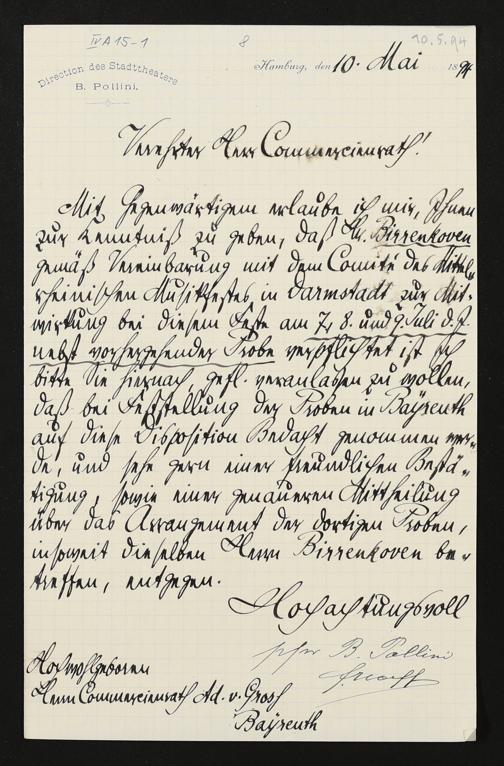 IV A 15-1
8
10.5.94
Direction des Stadttheaters
B. Pollini.
Hamburg, den 10. Mai 1894
Verehrter Herr Commercienrath!
Mit Gegenwärtigem erlaube ich mir, Ihnen
zur Kenntniß zu geben, daß Hr. Birrenkoven
gemäß Vereinbarung mit dem Comité des Mittel-
rheinischen Musikfestes in Darmstadt zur Mit-
wirkung bei diesem Feste am 7, 8. und 9. Juli d. J.
nebst vorhergehender Probe verpflichtet ist. Ich
bitte Sie hiernach, gefl. veranlassen zu wollen,
daß bei Feststellung der Proben in Bayreuth
auf diese Disposition Bedacht genommen wer-
de, und sehe gern einer freundlichen Bestä-
tigung, sowie einer genaueren Mittheilung
über das Arrangement der dortigen Proben,
insoweit dieselben Herrn Birrenkoven be-
treffen, entgegen.
Hochachtungsvoll
B. Pollini
Hochwohlgeboren
Herrn Commercienrath Ad. v. Gross
Bayreuth